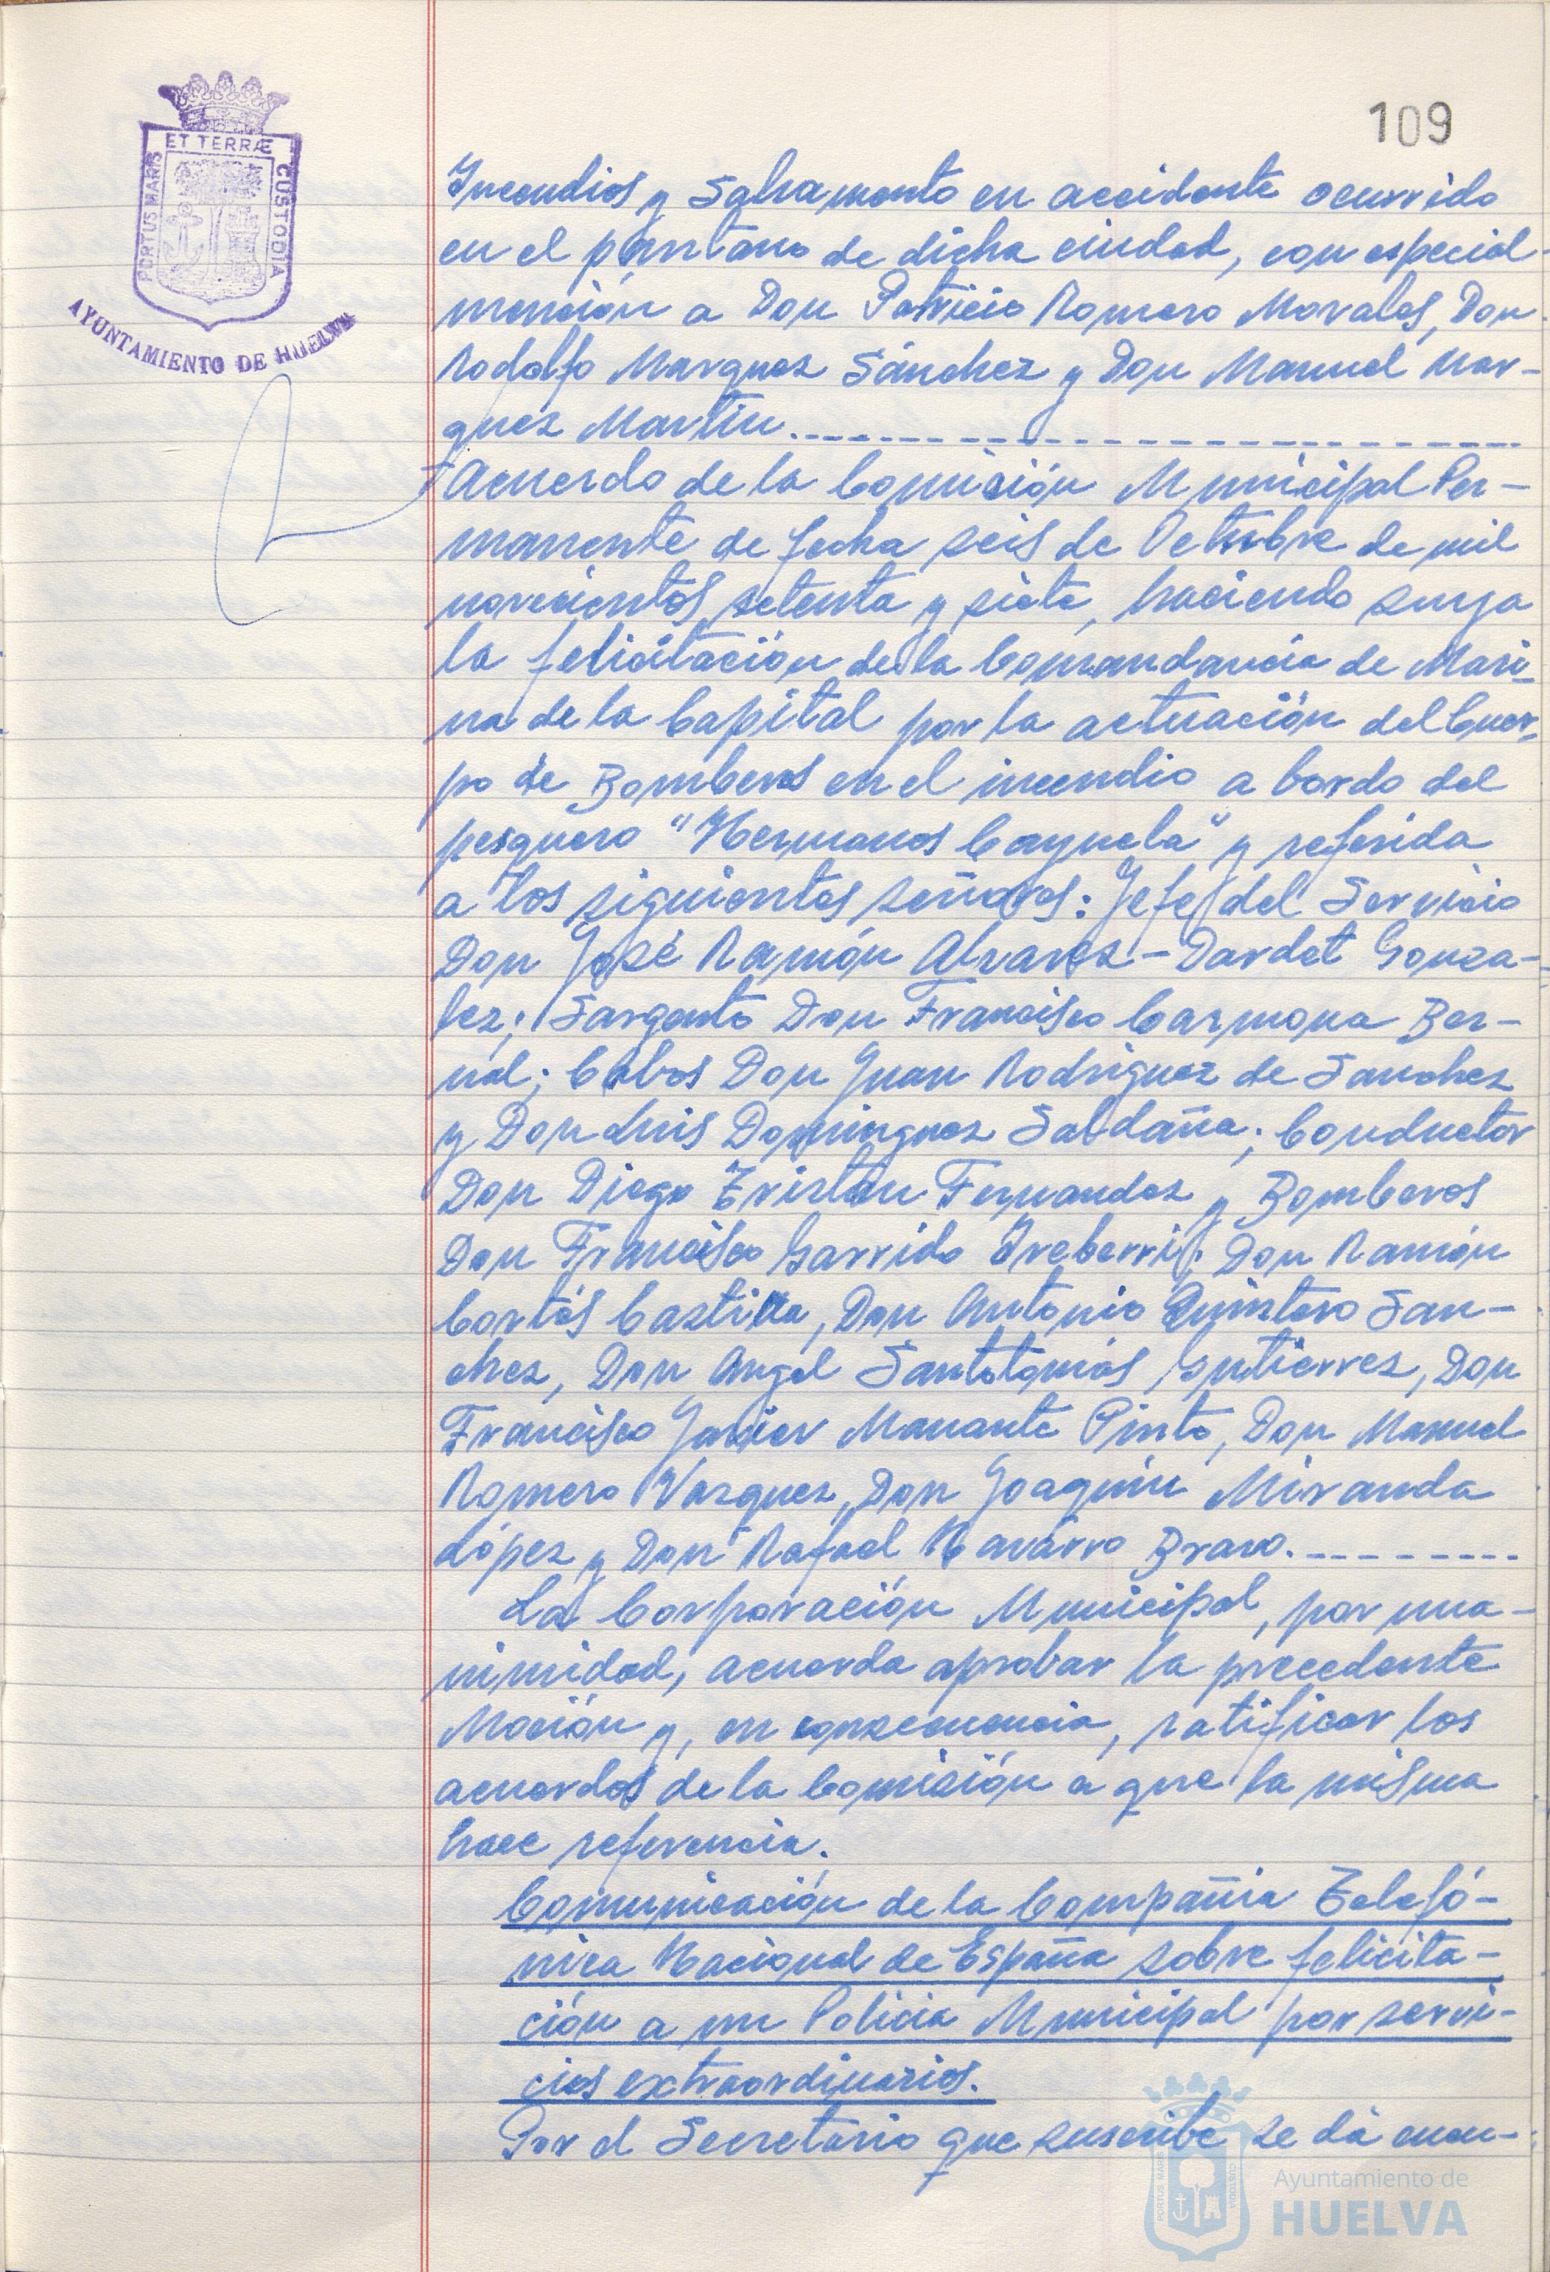 109
ET TERRÆ
PORTUS MARIS
CUSTODIA
AYUNTAMIENTO DE HUELVA
Incendios y Salvamento en accidente ocurrido
en el pantano de dicha ciudad, con especial
mención a Don Patricio Romero Morales, Don
Rodolfo Marquez Sánchez y Don Manuel Mar-
quez Martín.
Acuerdo de la Comisión Municipal Per-
manente de fecha seis de Octubre de mil
novecientos setenta y siete, haciendo suya
la felicitación de la Comandancia de Mari-
na de la Capital por la actuación del Cuer-
po de Bomberos en el incendio a bordo del
pesquero "Hermanos Cayuela" y referida
a los siguientes señores: Jefe del Servicio
Don José Ramón Alvarez-Dardet Gonza-
lez; Sargento Don Francisco Carmona Ber-
nal; Cabos Don Juan Rodriguez de Sanchez
y Don Luis Dominguez Saldaña; Conductor
Don Diego Tristán Fernandez y Bomberos
Don Francisco Garrido Ireberri; Don Ramón
Cortés Castilla, Don Antonio Quintero San-
chez, Don Angel Santotomás Gutierrez, Don
Francisco Javier Manante Pinto, Don Manuel
Romero Vazquez, Don Joaquin Miranda
López y Don Rafael Navarro Bravo.
La Corporación Municipal, por una-
nimidad, acuerda aprobar la precedente
Moción y, en consecuencia, ratificar los
acuerdos de la Comisión a que la misma
hace referencia.
Comunicación de la Compañia Telefó-
nica Nacional de España sobre felicita-
ción a un Policia Municipal por servi-
cios extraordinarios.
Por el Secretario que suscribe se dá cuen-
PORTUS MARIS
CUSTODIA
Ayuntamiento de
HUELVA